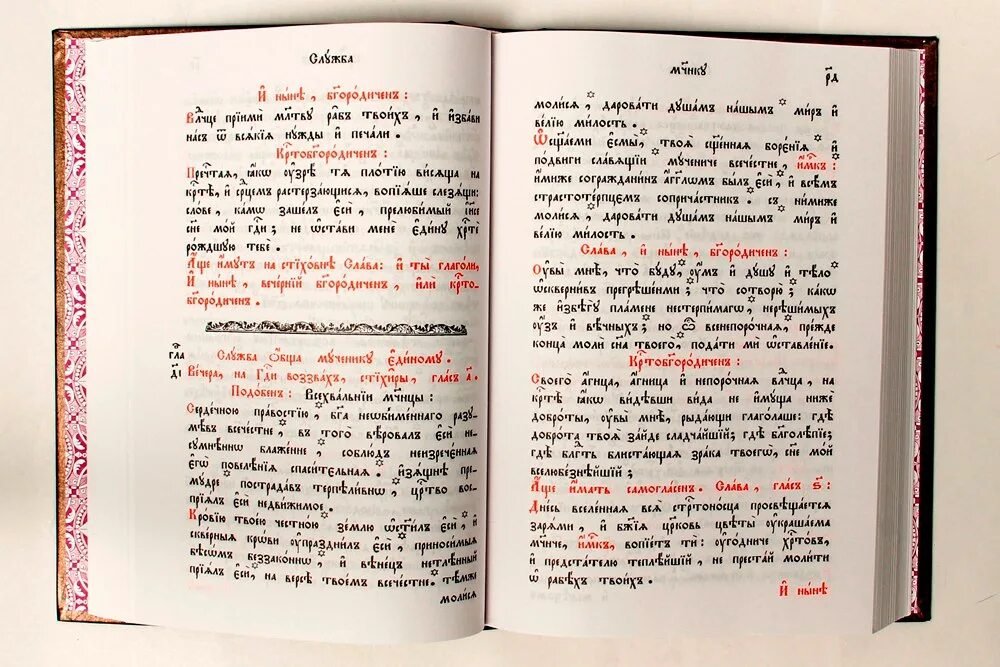 Слꙋ́жба
И҆ ны́нѣ, бг҃оро́диченъ:
Влⷣчце прїимѝ мл҃твꙋ ра̑бъ твои́хъ, и҆ и҆зба́ви
на́съ ѿ всѧ́кїѧ нꙋ́жды и҆ печа́ли.
Крⷭ҇тобг҃оро́диченъ:
Пречⷭ҇таѧ, ꙗ҆́кѡ ᲂу҆зрѣ̀ тѧ̀ пло́тїю висѧ́ща на
крⷭ҇тѣ̀, и҆ срⷣцемъ растерза́ющисѧ, вопїѧ́ше слезѧ́щи:
сло́ве, ка́мѡ заше́лъ є҆сѝ, прелюби́мый і҆и҃се
сн҃е мо́й гдⷭ҇и; не ѡ҆ста́ви менѐ є҆ди́нꙋ хрⷭ҇тѐ
ро́ждшꙋю тебѐ.
А҆́ще и҆́мꙋтъ на стїхо́внѣ Сла́ва: и҆ ты̀ глаго́ли,
И҆ ны́нѣ, вече́рнїй бг҃оро́диченъ, и҆лѝ крⷭ҇то-
бг҃оро́диченъ.
Слꙋ́жба ѻ҆́бща мꙋ́ченикꙋ є҆ди́номꙋ.
гла
д҃і
Ве́чера, на Гдⷭ҇и воззва́хъ, стїхи̑ры, гла́съ а҃.
Подо́бенъ: Всехва́льнїи мч҃нцы:
Серде́чною пра́востїю, бг҃а неѡбиме́ннаго разꙋ-
мѣ́въ всече́стне, въ того̀ вѣ́ровалъ є҆сѝ не-
сꙋмнѣ́ннѡ блаже́нне, соблю́дъ неизрече́ннаѧ
є҆гѡ̀ повелѣ̑нїѧ спаси́тельнаѧ. и҆зѧ́щнѣ пре-
мꙋ́дре пострада́въ терпѣли́внѡ, црⷭ҇тво вос-
прїѧ́лъ є҆сѝ недви́жимое.
Кро́вїю твое́ю честно́ю зе́млю ѡ҆ст҃и́лъ є҆сѝ, и҆
сквє́рныѧ крѡ́ви ᲂу҆праздни́лъ є҆сѝ, приноси̑мыѧ
бѣсѡ́мъ беззако́ннѡ, и҆ вѣне́цъ нетлѣ́нный
прїѧ́лъ є҆сѝ, на версѣ̀ твое́мъ всече́стне. тѣ́мже
моли́сѧ
мч҃нкꙋ
рд҃
моли́сѧ, дарова́ти дꙋша́мъ на́шымъ ми́ръ и҆
ве́лїю ми́лость.
Ѡ҆сщ҃а́еми є҆смы̀, твоѧ̑ сщ҃є́ннаѧ борє́нїѧ и҆
по́двиги сла́вѧщїи мꙋ́чениче всече́стне, и҆́мⷬ҇къ:
и҆́миже согражда́нинъ а҆́гг҃лѡмъ бы́лъ є҆сѝ, и҆ всѣ̑мъ
страстоте́рпцємъ соприча́стникъ. съ ни́миже
моли́сѧ, дарова́ти дꙋша́мъ на́шымъ ми́ръ и҆
ве́лїю ми́лость.
Сла́ва, и҆ ны́нѣ, бг҃оро́диченъ:
Оу҆вы̀ мнѣ̀, что̀ бꙋ́дꙋ, ᲂу҆́мъ и҆ дꙋ́шꙋ и҆ тѣ́ло
ѡ҆скверни́въ прегрѣшє́ньми; что̀ сотворю̀; ка́кѡ
же и҆збѣ́гꙋ пла́мене нестерпи́магѡ, нерѣши́мыхъ
ᲂу҆́зъ и҆ вѣ́чныхъ; но ѽ всенепоро́чнаѧ, пре́жде
конца̀ молѝ сн҃а твоего̀, пода́ти мѝ ѡ҆ставле́нїе.
Крⷭ҇тобг҃оро́диченъ:
Своего̀ а҆́гнца, а҆́гница и҆ непоро́чнаѧ влⷣчца, на
крⷭ҇тѣ̀ ꙗ҆́кѡ ви́дѣвши ви́да не и҆мꙋ́ща нижѐ
добро́ты, ᲂу҆вы̀ мнѣ̀, рыда́ющи глаго́лаше: гдѣ̀
добро́та твоѧ̀ за́йде сладча́йшїй; гдѣ̀ бл҃голѣ́пїе;
гдѣ̀ блгⷣть блиста́ющаѧ зра́ка твоегѡ̀, сн҃е мо́й
вселюбе́знѣйшїй;
А҆́ще и҆́мать самогла́сенъ. Сла́ва, гла́съ ѕ҃:
Дне́сь вселе́ннаѧ всѧ̀ стрⷭ҇тоно́сца просвѣща́етсѧ
зарѧ́ми, и҆ бж҃їѧ цр҃ковь цвѣ̑ты ᲂу҆краша́ема
мч҃нче, и҆́мⷬ҇къ, вопїе́тъ тѝ: ᲂу҆го́дниче хрⷭ҇то́въ,
и҆ предста́телю теплѣ́йшїй, не преста́й моли́ти
ѡ҆ рабѣ́хъ твои́хъ.
И҆ ны́нѣ